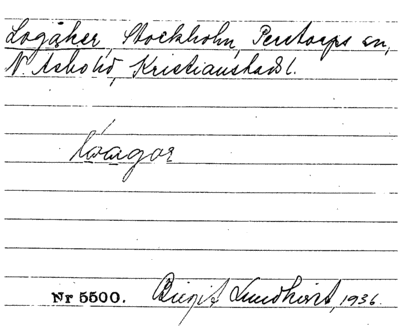 Logåker, Stockholm, Perstorps sn,
N. Asbo hd, Kristianstads l.
lóagor
Nr 5500. Birgit Lundkvist, 1936.